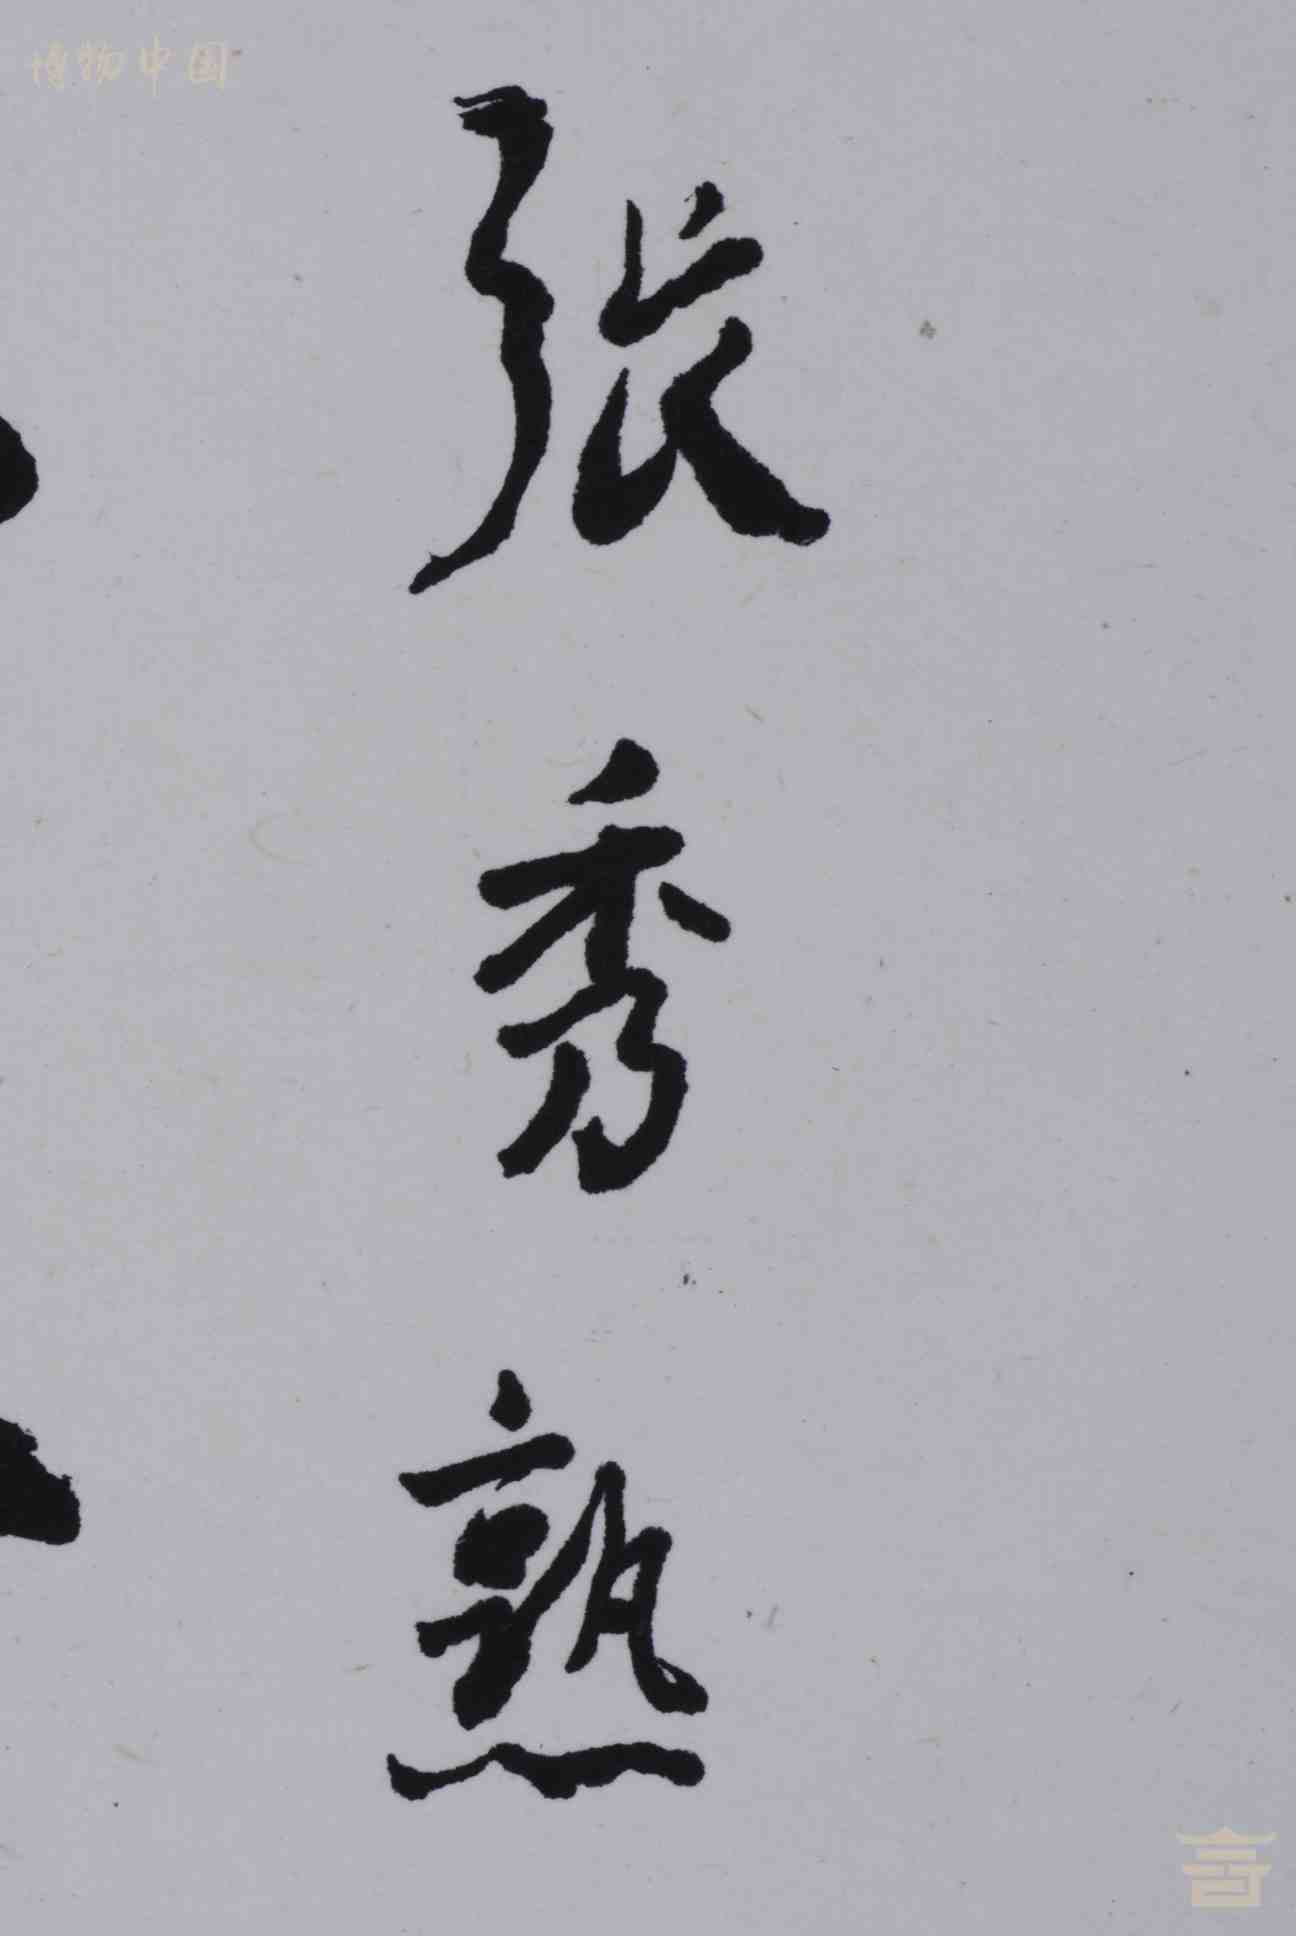 博物中国
张秀熟